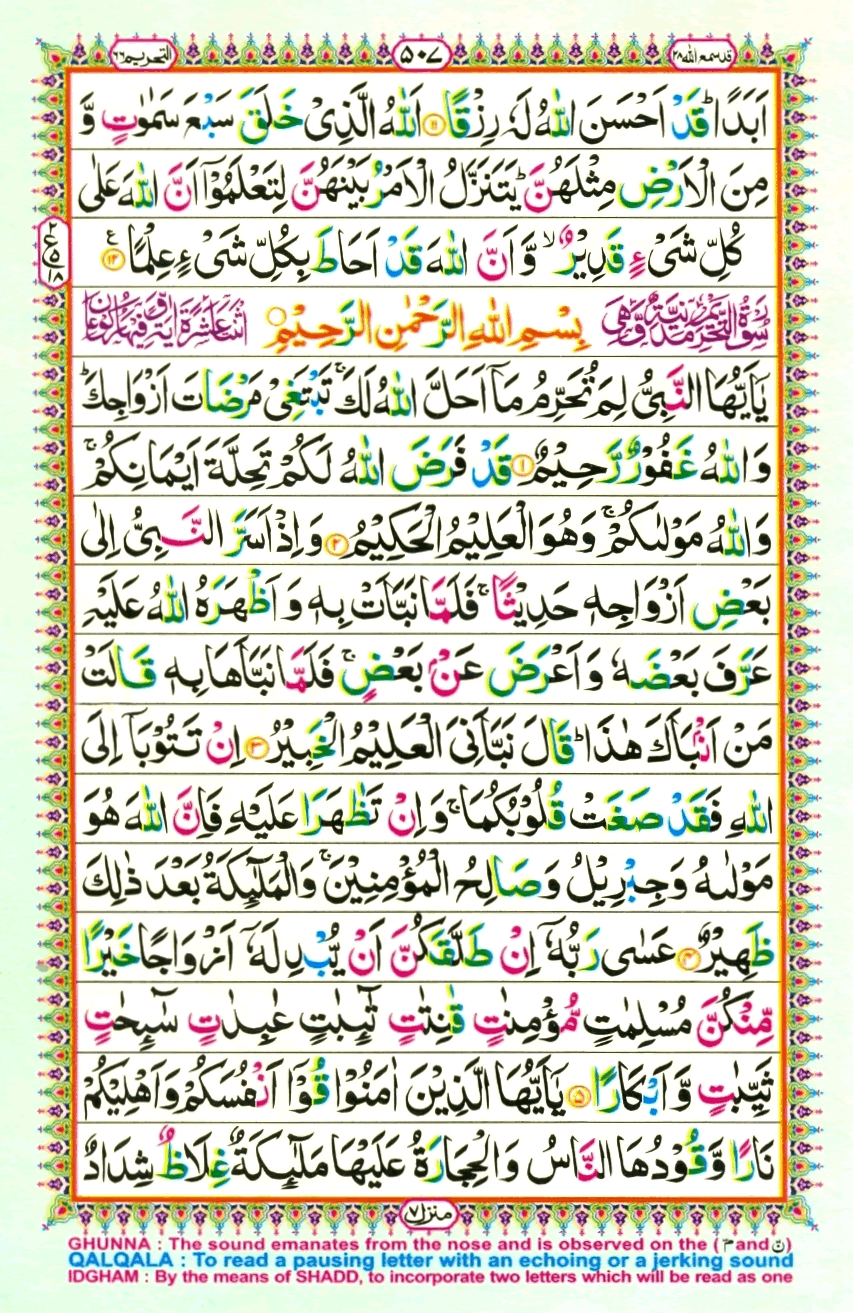 قد سمع الله ۲۸
۵۰۷
التحریم ۶۶
اَبَدًا ؕ قَدْ اَحْسَنَ اللّٰهُ لَهٗ رِزْقًا ۝۱۱ اَللّٰهُ الَّذِیْ خَلَقَ سَبْعَ سَمٰوٰتٍ وَّ
مِنَ الْاَرْضِ مِثْلَهُنَّ ؕ یَتَنَزَّلُ الْاَمْرُ بَیْنَهُنَّ لِتَعْلَمُوْۤا اَنَّ اللّٰهَ عَلٰی
كُلِّ شَیْءٍ قَدِیْرٌ ۙ۬ وَّ اَنَّ اللّٰهَ قَدْ اَحَاطَ بِكُلِّ شَیْءٍ عِلْمًا ۝۱۲ ع
۲
ع
۵
۱۸
سُوْرَةُ التَّحْرِیْمِ مَدَنِیَّةٌ وَّهِیَ بِسْمِ اللّٰهِ الرَّحْمٰنِ الرَّحِیْمِ ۝ اثْنَتَا عَشْرَةَ اٰیَةً وَّفِیْهَا رُكُوْعَانِ
یٰۤاَیُّهَا النَّبِیُّ لِمَ تُحَرِّمُ مَاۤ اَحَلَّ اللّٰهُ لَكَ ۚ تَبْتَغِیْ مَرْضَاتَ اَزْوَاجِكَ ؕ
وَ اللّٰهُ غَفُوْرٌ رَّحِیْمٌ ۝۱ قَدْ فَرَضَ اللّٰهُ لَكُمْ تَحِلَّةَ اَیْمَانِكُمْ ۚ
وَ اللّٰهُ مَوْلٰىكُمْ ۚ وَهُوَ الْعَلِیْمُ الْحَكِیْمُ ۝۲ وَ اِذْ اَسَرَّ النَّبِیُّ اِلٰی
بَعْضِ اَزْوَاجِهٖ حَدِیْثًا ۚ فَلَمَّا نَبَّاَتْ بِهٖ وَ اَظْهَرَهُ اللّٰهُ عَلَیْهِ
عَرَّفَ بَعْضَهٗ وَ اَعْرَضَ عَنْۢ بَعْضٍ ۚ فَلَمَّا نَبَّاَهَا بِهٖ قَالَتْ
مَنْ اَنْۢبَاَكَ هٰذَا ؕ قَالَ نَبَّاَنِیَ الْعَلِیْمُ الْخَبِیْرُ ۝۳ اِنْ تَتُوْبَاۤ اِلَی
اللّٰهِ فَقَدْ صَغَتْ قُلُوْبُكُمَا ۚ وَ اِنْ تَظٰهَرَا عَلَیْهِ فَاِنَّ اللّٰهَ هُوَ
مَوْلٰىهُ وَ جِبْرِیْلُ وَ صَالِحُ الْمُؤْمِنِیْنَ ۚ وَ الْمَلٰٓىِٕكَةُ بَعْدَ ذٰلِكَ
ظَهِیْرٌ ۝۴ عَسٰی رَبُّهٗۤ اِنْ طَلَّقَكُنَّ اَنْ یُّبْدِلَهٗۤ اَزْوَاجًا خَیْرًا
مِّنْكُنَّ مُسْلِمٰتٍ مُّؤْمِنٰتٍ قٰنِتٰتٍ تٰٓىِٕبٰتٍ عٰبِدٰتٍ سٰٓىِٕحٰتٍ
ثَیِّبٰتٍ وَّ اَبْكَارًا ۝۵ یٰۤاَیُّهَا الَّذِیْنَ اٰمَنُوْا قُوْۤا اَنْفُسَكُمْ وَ اَهْلِیْكُمْ
نَارًا وَّ قُوْدُهَا النَّاسُ وَ الْحِجَارَةُ عَلَیْهَا مَلٰٓىِٕكَةٌ غِلَاظٌ شِدَادٌ
منزل ۷
GHUNNA : The sound emanates from the nose and is observed on the (مّ and نّ)
QALQALA : To read a pausing letter with an echoing or a jerking sound
IDGHAM : By the means of SHADD, to incorporate two letters which will be read as one